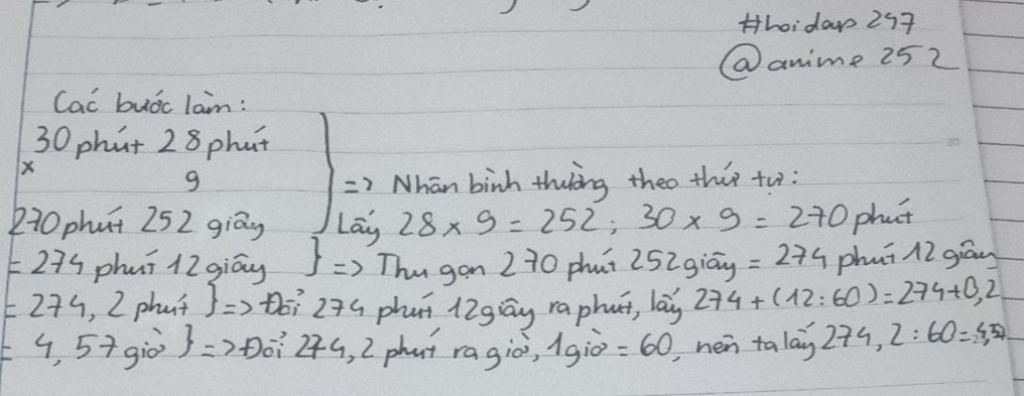 #hoidap 247
@anime 252
Các bước làm:
30 phút 28 phút
x
9
=> Nhân bình thường theo thứ tự:
270 phút 252 giây
Lấy 28 x 9 = 252; 30 x 9 = 270 phút
= 274 phút 12 giây } => Thu gọn 270 phút 252 giây = 274 phút 12 giây
= 274, 2 phút } => Đổi 274 phút 12 giây ra phút, lấy 274 + (12 : 60) = 274+0,2
= 4, 57 giờ } => Đổi 274, 2 phút ra giờ, 1 giờ = 60, nên ta lấy 274, 2 : 60 = 4,57